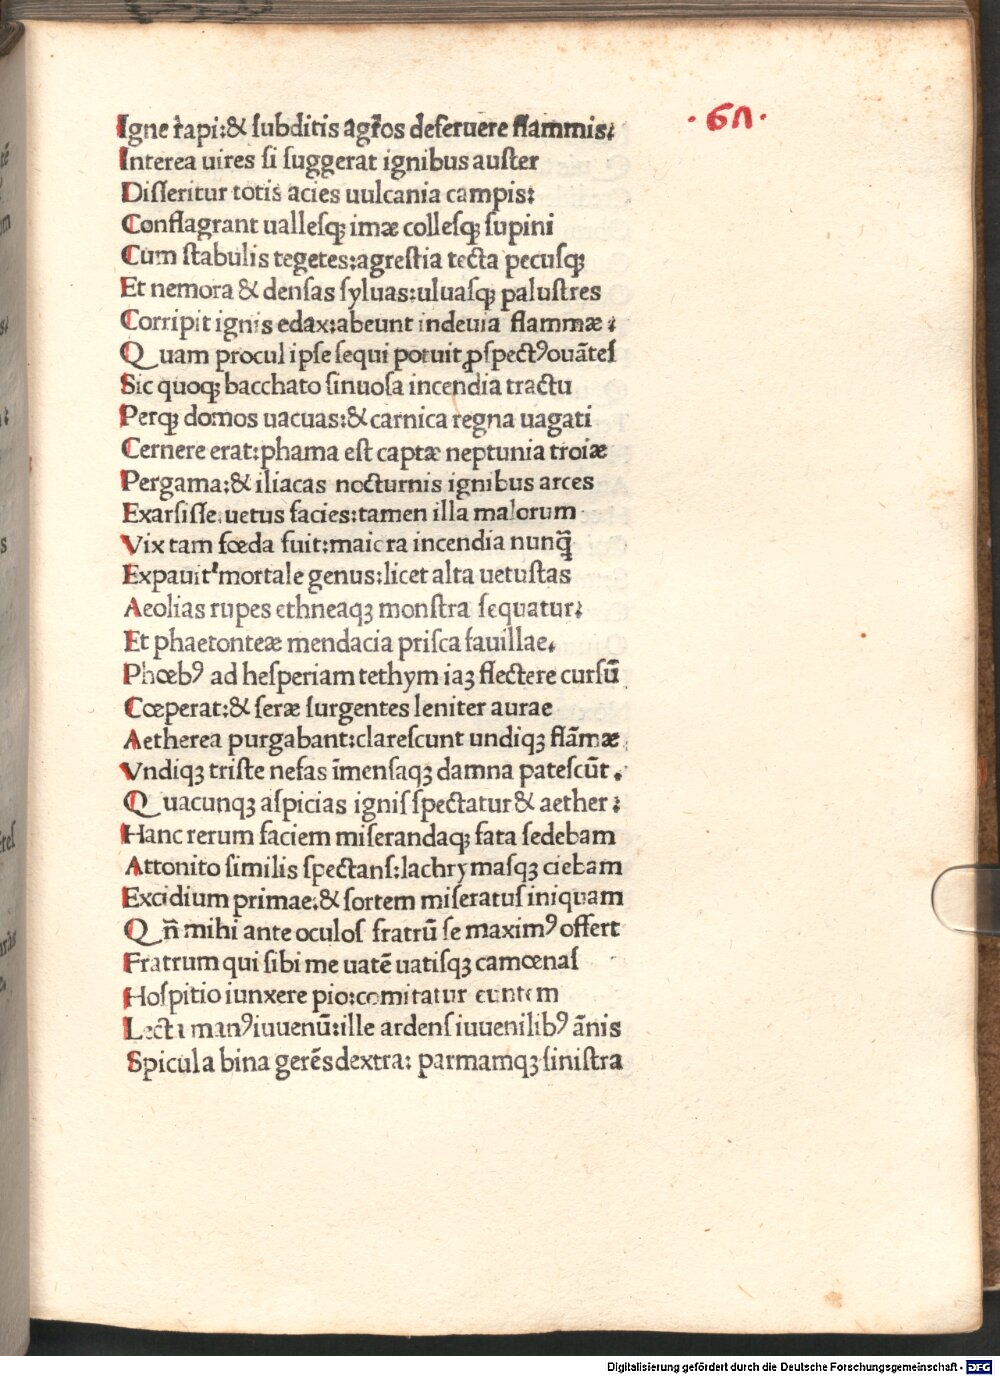 ·67·
Igne rapi:& ſubditis agros deſeruere flammis:
Interea uires ſi ſuggerat ignibus auſter
Diſſeritur totis acies uulcania campis:
Conflagrant ualleſqꝫ imæ colleſqꝫ ſupini
Cum ſtabulis tegetes:agreſtia tecta pecuſqꝫ
Et nemora & denſas ſyluas:uluaſqꝫ paluſtres
Corripit ignis edax:abeunt indeuia flammæ:
Quam procul ipſe ſequi potuit ꝓſpectꝰ ouãteſ
Sic quoqꝫ bacchato ſinuoſa incendia tractu
Perqꝫ domos uacuas:& carnica regna uagati
Cernere erat:phama eſt captæ neptunia troiæ
Pergama:& iliacas nocturnis ignibus arces
Exarſiſſe.uetus facies:tamen illa malorum
Vix tam fœda fuit:maiora incendia nunq̃
Expauit mortale genus:licet alta uetuſtas
Aeolias rupes ethneaqꝫ monſtra ſequatur:
Et phaetonteæ mendacia priſca fauillae.
Phœbꝰ ad heſperiam tethym iaꝫ flectere curſũ
Cœperat:& ſeræ ſurgentes leniter aurae
Aetherea purgabant:clareſcunt undiqꝫ flãmæ:
Vndiqꝫ triſte nefas ĩmenſaqꝫ damna pateſcũt.
Quacunqꝫ aſpicias igniſ ſpectatur & aether:
Hanc rerum faciem miſerandaqꝫ fata ſedebam
Attonito ſimilis ſpectanſ:lachrymaſqꝫ ciebam
Excidium primae:& ſortem miſeratuſ iniquam
Qñ mihi ante oculoſ fratrũ ſe maximꝰ offert
Fratrum qui ſibi me uatẽ uatiſqꝫ camœnaſ
Hoſpitio iunxere pio:comitatur euntem
Lecta manꝰ iuuenũ:ille ardenſ iuuenilibꝰ ãnis
Spicula bina gerẽs dextra: parmamqꝫ ſiniſtra
Digitalisierung gefördert durch die Deutsche Forschungsgemeinschaft - DFG